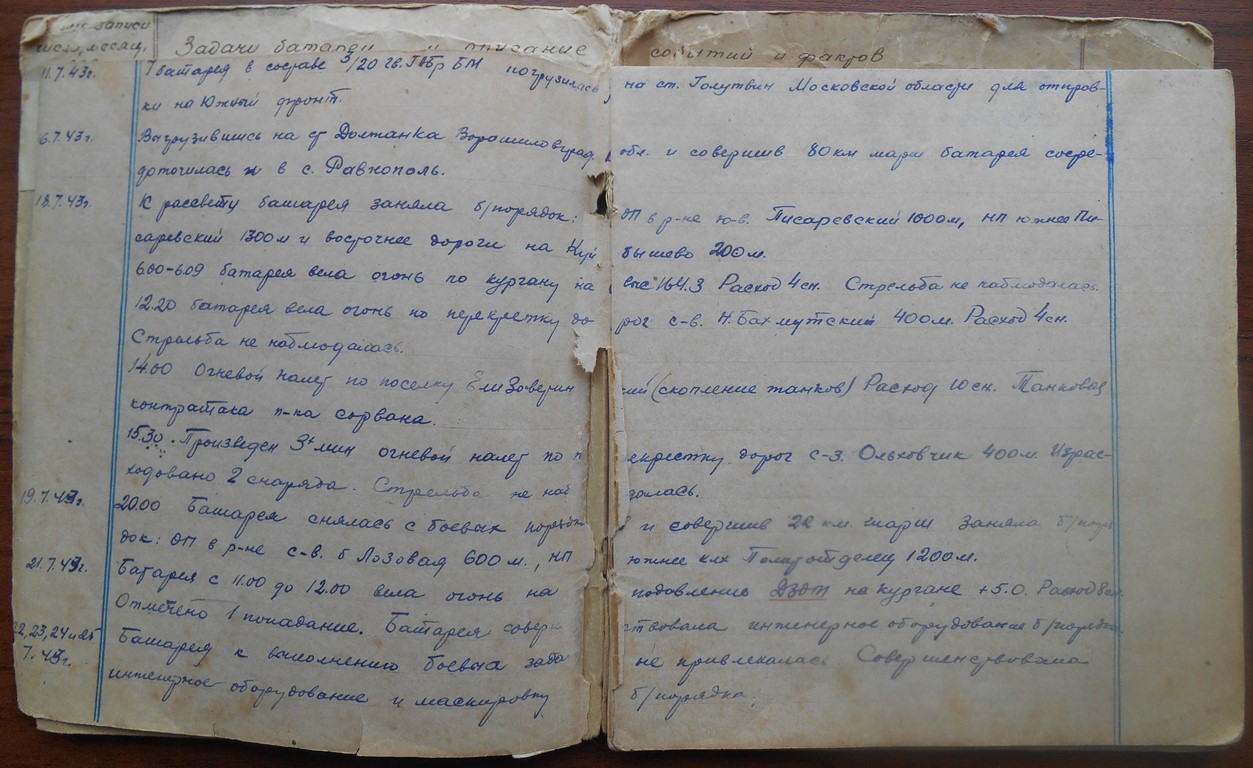 записи
число, месяц, Задачи батареи и описание событий и фактов
11.7.43г. 1 батарея в составе 3/20 гв. ГАБр БМ погрузилась на ст. Голутвин Московской области для отправ-
ки на Южный фронт.
6.7.43г. Выгрузившись на ст Должанка Ворошиловград. обл. и совершив 80 км марш батарея сосре-
доточилась в с. Равнополь.
18.7.43г. К рассвету батарея заняла б/порядок: ОП в р-не ю-в. Писаревский 1000м, НП южнее Пи-
саревский 1300м и восточнее дороги на Куйбышево 200м.
6.00-6.09 батарея вела огонь по кургану на выс 164.3 Расход 4 сн. Стрельба не наблюдалась.
12.20 батарея вела огонь по перекрестку дорог с-в. Н. Бахмутский 400м. Расход 4 сн.
Стрельба не наблюдалась.
14.00 Огневой налет по поселку Елизоветинский (скопление танков) Расход 10 сн. Танковая
контратака п-ка сорвана.
15.30. Произведен 3х мин огневой налет по перекрестку дорог с-з. Ольховчик 400м. Израс-
ходовано 2 снаряда. Стрельба не наблюдалась.
19.7.43г. 20.00 Батарея снялась с боевых порядков и совершив 22 км. марш заняла б/поря
док: ОП в р-не с-в. б Лозовая 600м., НП южнее клх Политотделец 1200м.
21.7.43г. Батарея с 11.00 до 12.00 вела огонь на подовление ДЗОТ на кургане +5.0. Расход 8 сн.
Отмечено 1 попадание. Батарея совершенствовала инженерное оборудование б/порядка.
22, 23, 24 и 25 Батарея к выполнению боевых задач не привлекалась Совершенствовала
7.43г. инженерное оборудование и маскировку б/порядка.